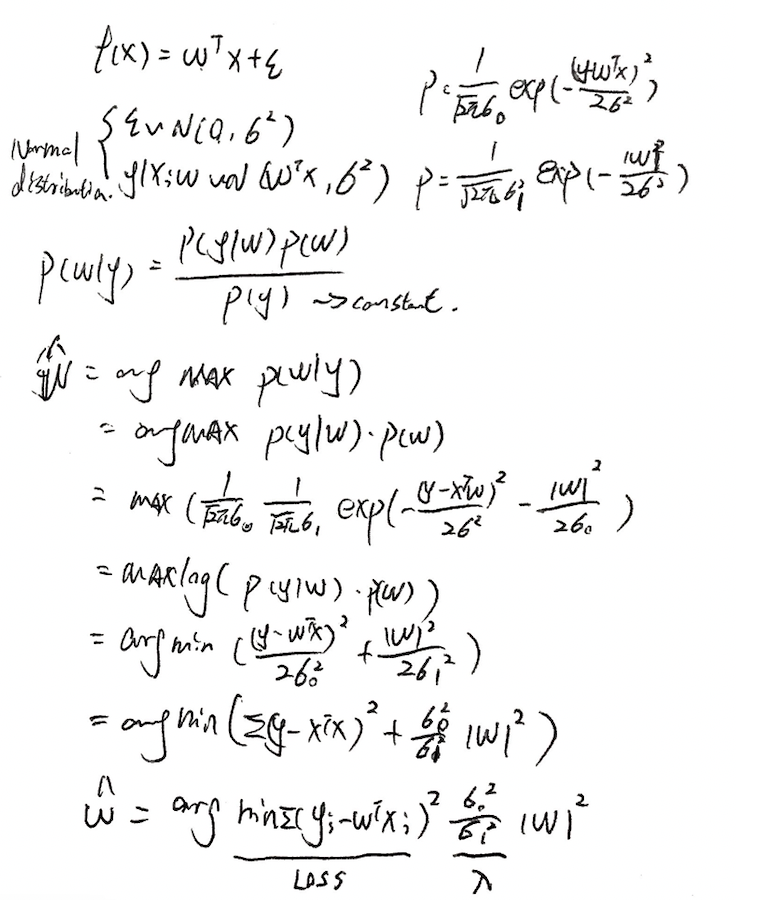 f(x) = w^T x + ε
p = 1/(√2π σ_0) exp(-(y-w^T x)^2 / 2σ^2)
Normal distribution. { ε ~ N(0, σ^2)
y|x;w ~ N(w^T x, σ^2)
p = 1/(√2π σ_1) exp(-|w|^2 / 2σ^2)
p(w|y) = p(y|w) p(w) / p(y) → constant.
ŵ = arg MAX p(w|y)
= argMAX p(y|w)·p(w)
= MAX (1/(√2π σ_0) 1/(√2π σ_1) exp(-(y-x^T w)^2 / 2σ^2 - |w|^2 / 2σ_0)
= MAX log( p(y|w)·p(w))
= arg min ((y-w^T x)^2 / 2σ_0^2 + |w|^2 / 2σ_1^2)
= arg min (Σ(y-x^T x)^2 + σ_0^2/σ_1^2 |w|^2)
ŵ = arg min Σ(y_i-w^T x_i)^2 σ_0^2/σ_1^2 |w|^2
LOSS λ